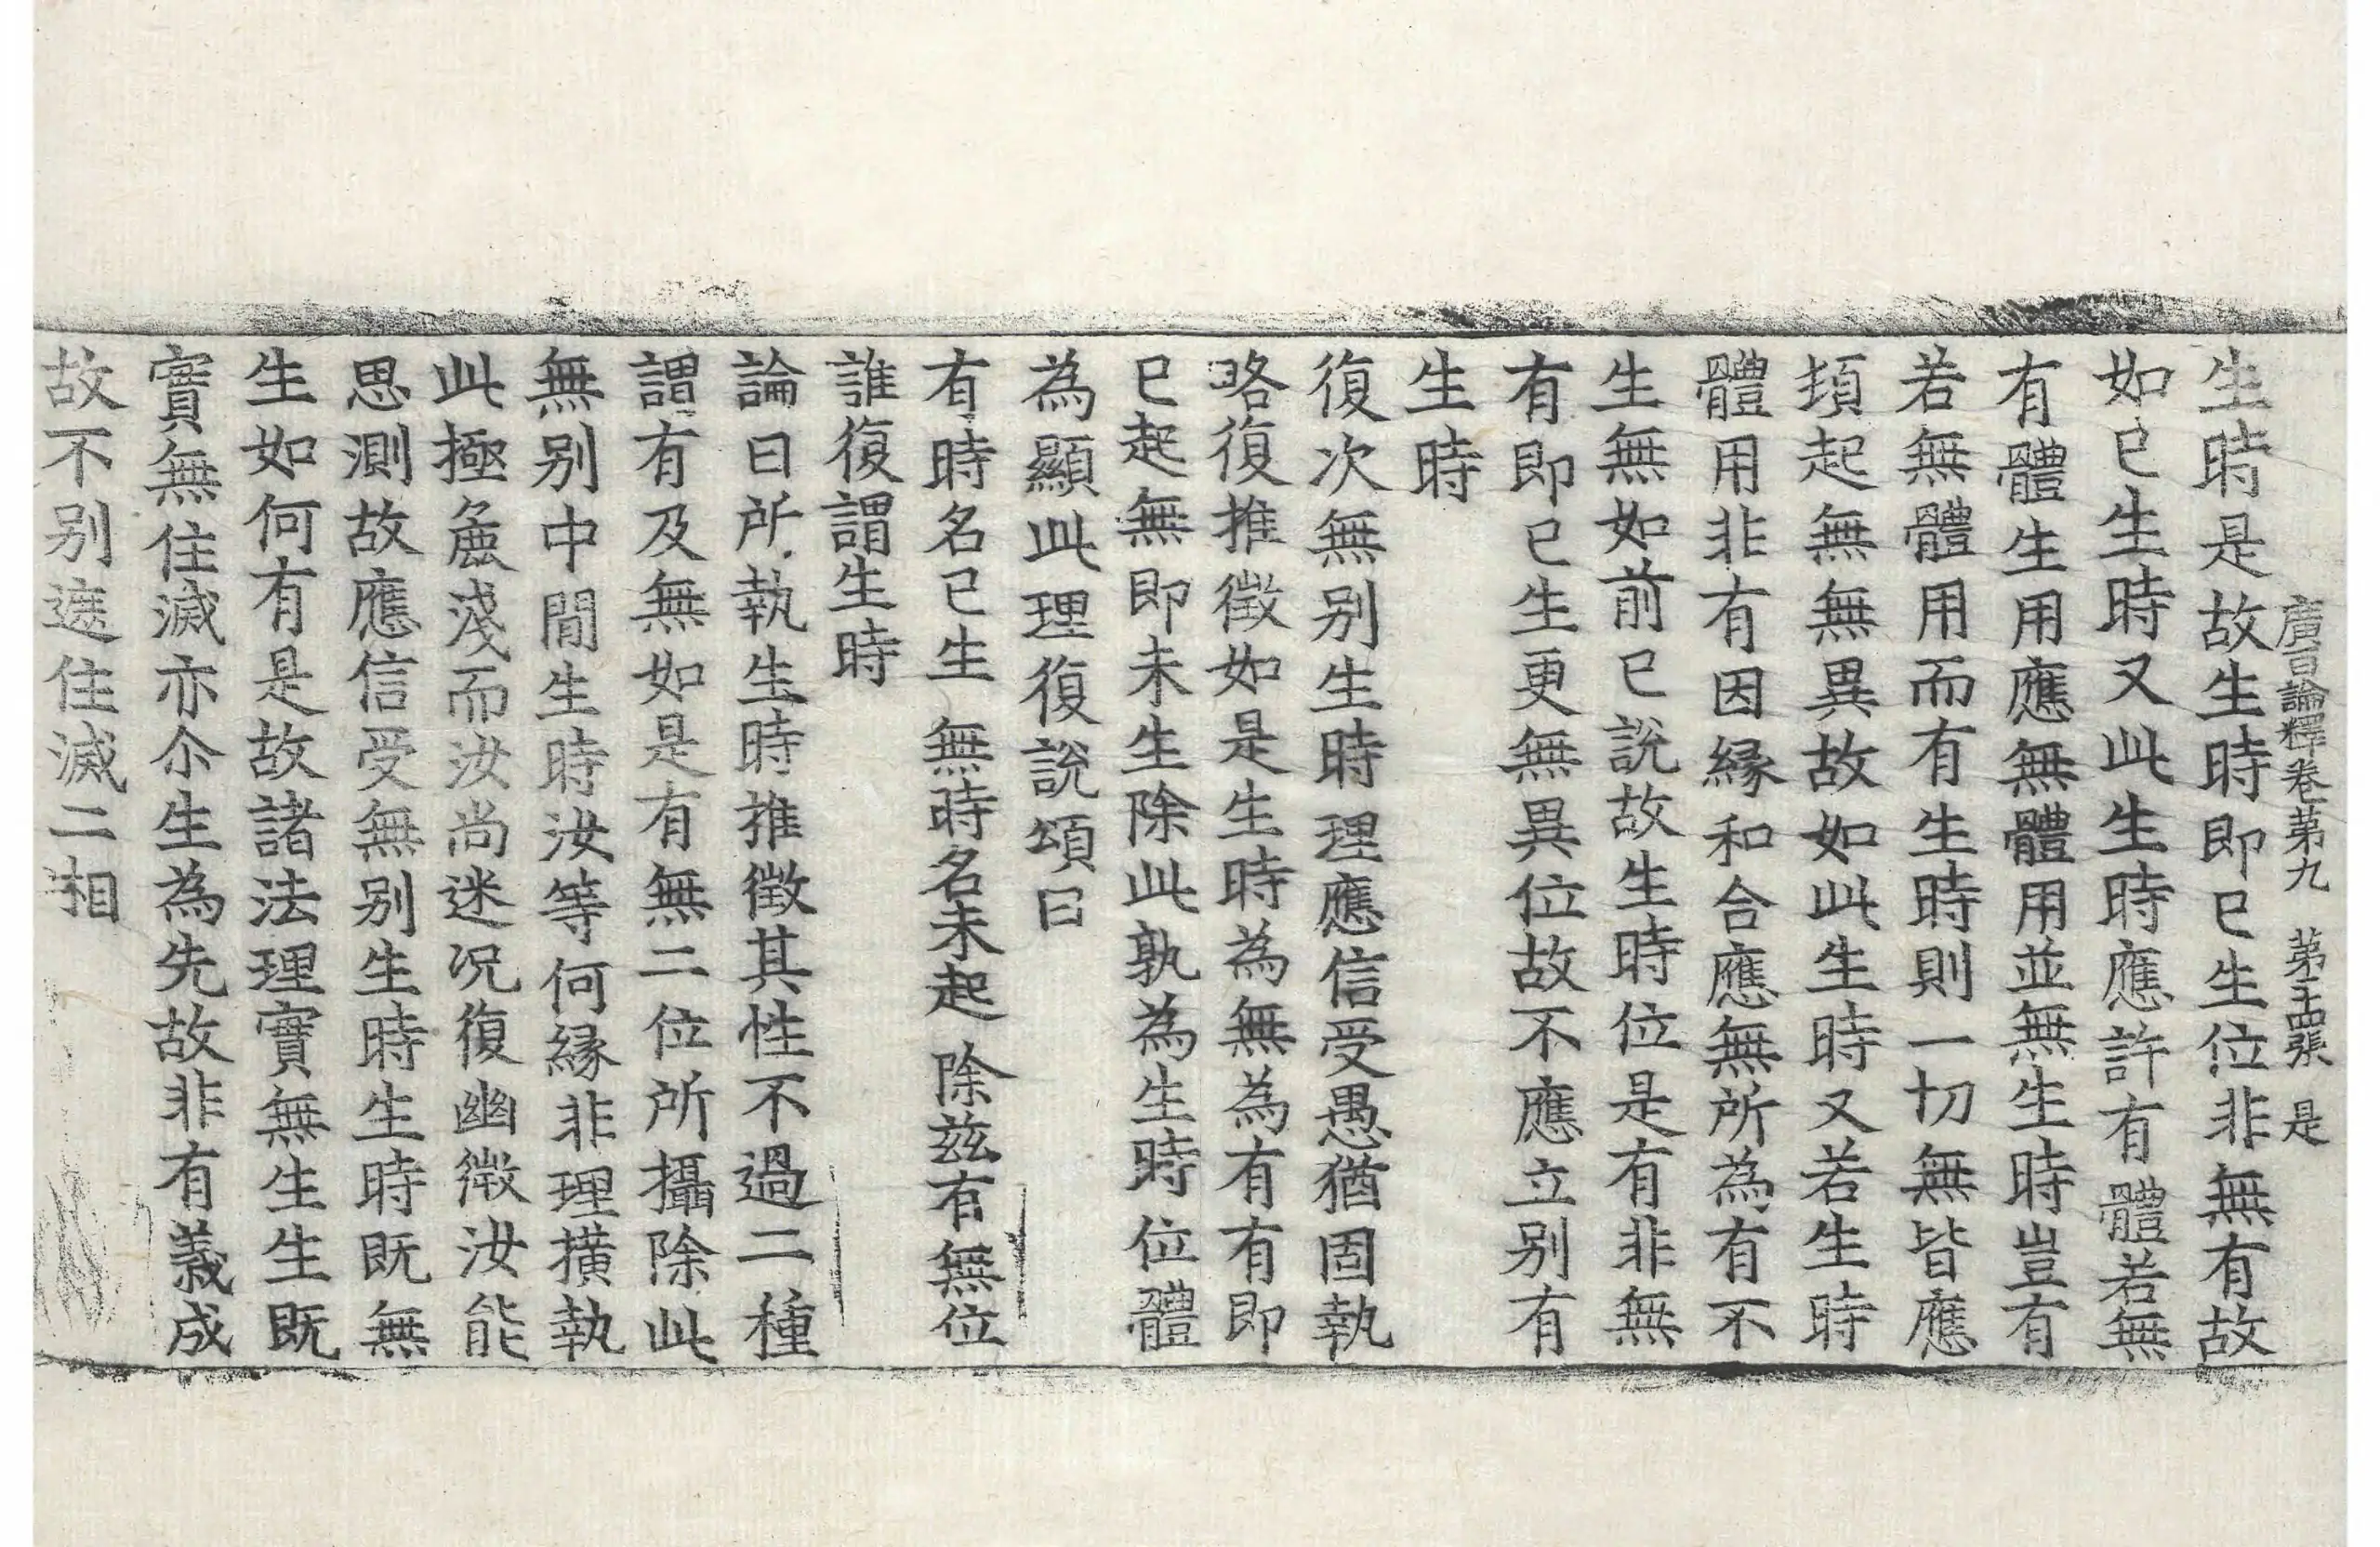 廣百論釋卷第九 第三十四張 是
生時是故生時即已生位非無有故
如已生時又此生時應許有體若無
有體生用應無體用並無生時豈有
若無體用而有生時則一切無皆應
頃起無無異故如此生時又若生時
體用非有因縁和合應無所為有不
生無如前已說故生時位是有非無
有即已生更無異位故不應立别有
生時
復次無别生時理應信受愚猶固執
略復推徵如是生時為無為有有即
已起無即未生除此孰為生時位體
為顯此理復說頌曰
有時名已生 無時名未起 除兹有無位
誰復謂生時
論曰所執生時推徵其性不過二種
謂有及無如是有無二位所攝除此
無别中間生時汝等何縁非理擴執
此極麁淺而汝尚迷況復幽微汝能
思測故應信受無别生時生時既無
生如何有是故諸法理實無生生既
實無住滅亦尒生為先故非有義成
故不别遮住滅二相